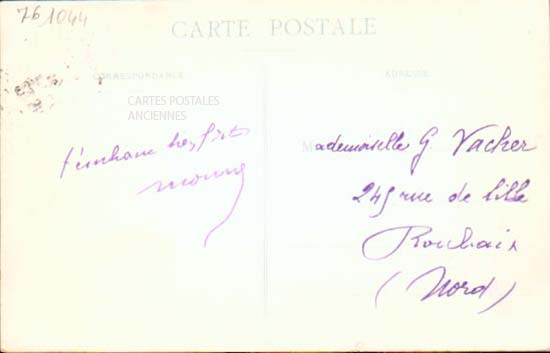 76 1044
CARTE POSTALE
CORRESPONDANCE
ADRESSE
CARTES POSTALES
ANCIENNES
Mademoiselle G Vacher
245 rue de Lille
Roubaix
(Nord)